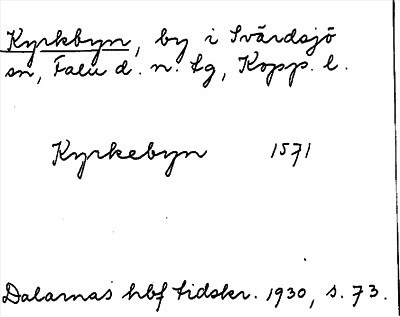 Kyrkbyn, by i Svärdsjö
sn, Falu d. n. tg, Kopp. l.
Kyrkebyn 1571
Dalarnas hbf tidskr. 1930, s. 73.